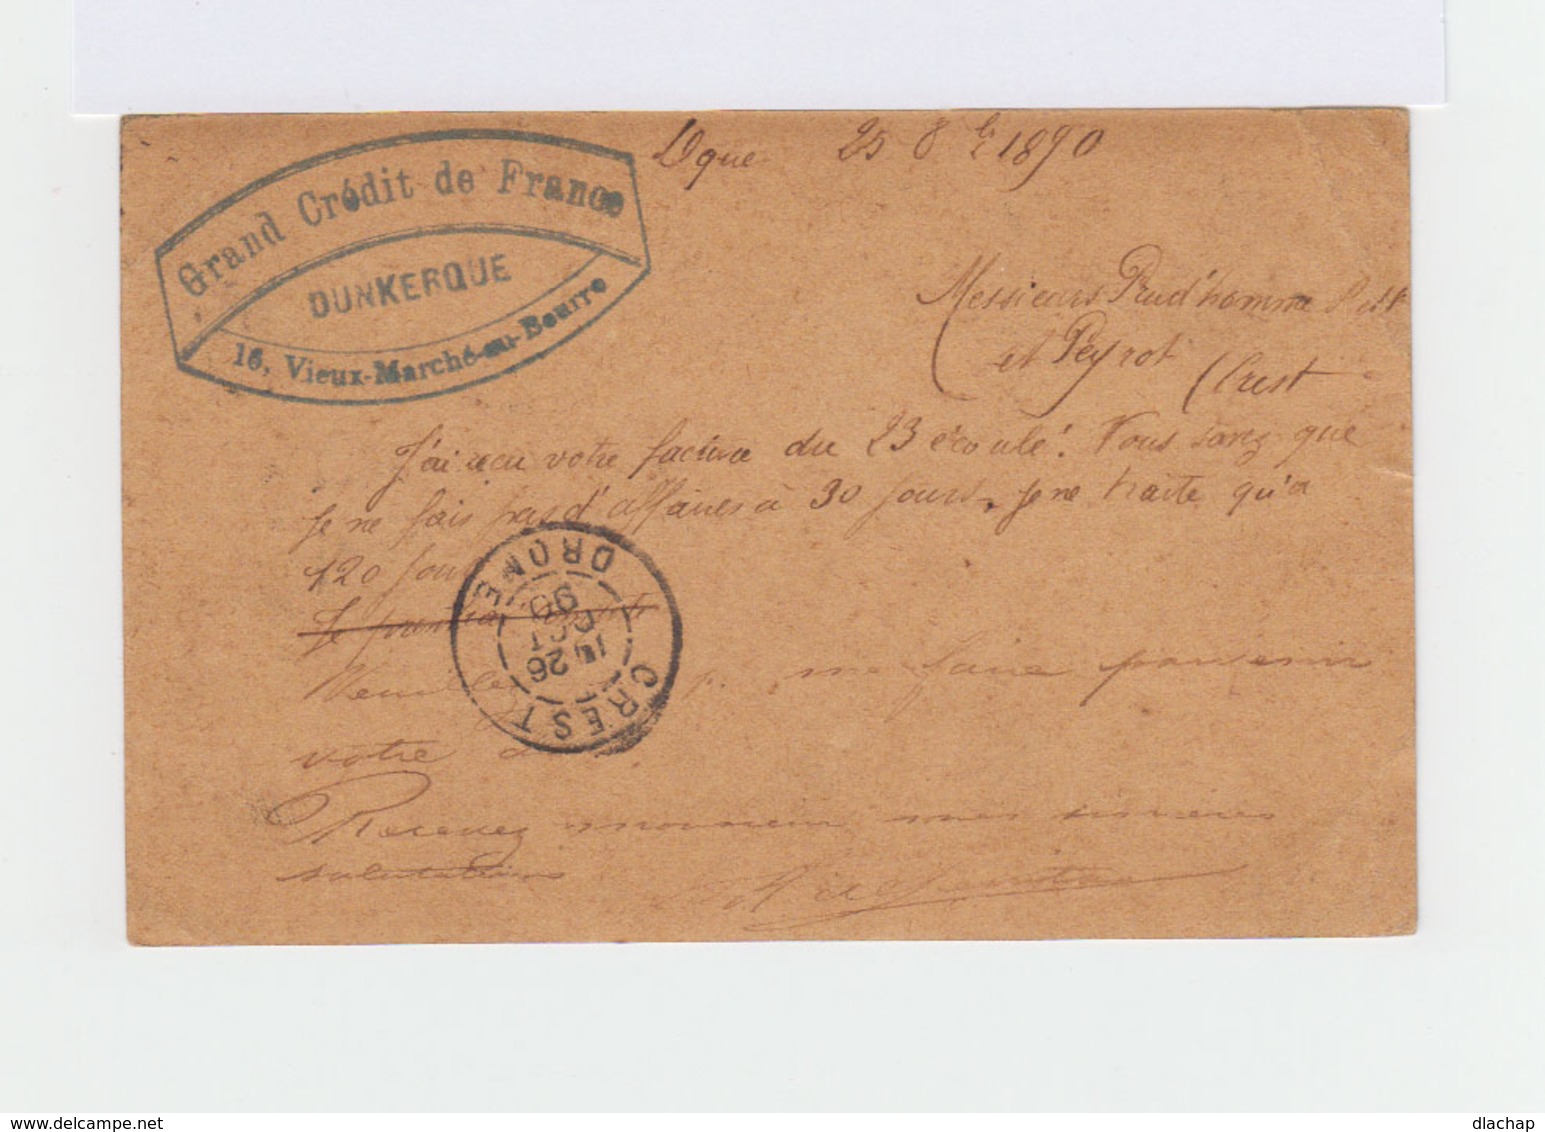 Grand Crédit de France
DUNKERQUE
16, Vieux-Marché-au-Beurre
Dque 25 8bre 1890
Messieurs Prud'homme
et Peyrot
Crest
J'ai reçu votre facture du 23 écoulé. Vous savez que
je ne fais pas d'affaires à 30 jours, je ne traite qu'a
120 jours
Veuillez me faire parvenir
votre
Recevez monsieur mes sincères
salutations
CREST
26
OCT
90
DROME
www.delcampe.net
dlachap